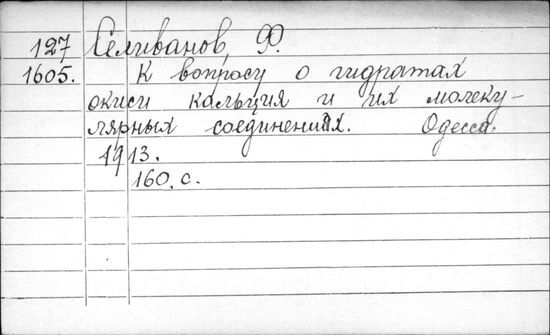 127 Селиванов, Ф.
1605. К вопросу о гидратах
окиси кальция и их молеку-
лярных соединениях. Одесса.
1913.
160. с.